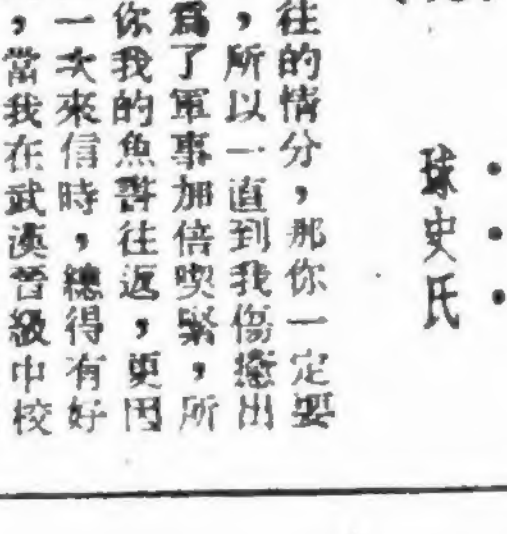 球史氏
往的情分，那你一定要
，所以一直到我傷癒出
爲了軍事加倍喫緊，所
你我的魚書往返，更因
一次來信時，總得有好
，當我在武漢晉級中校